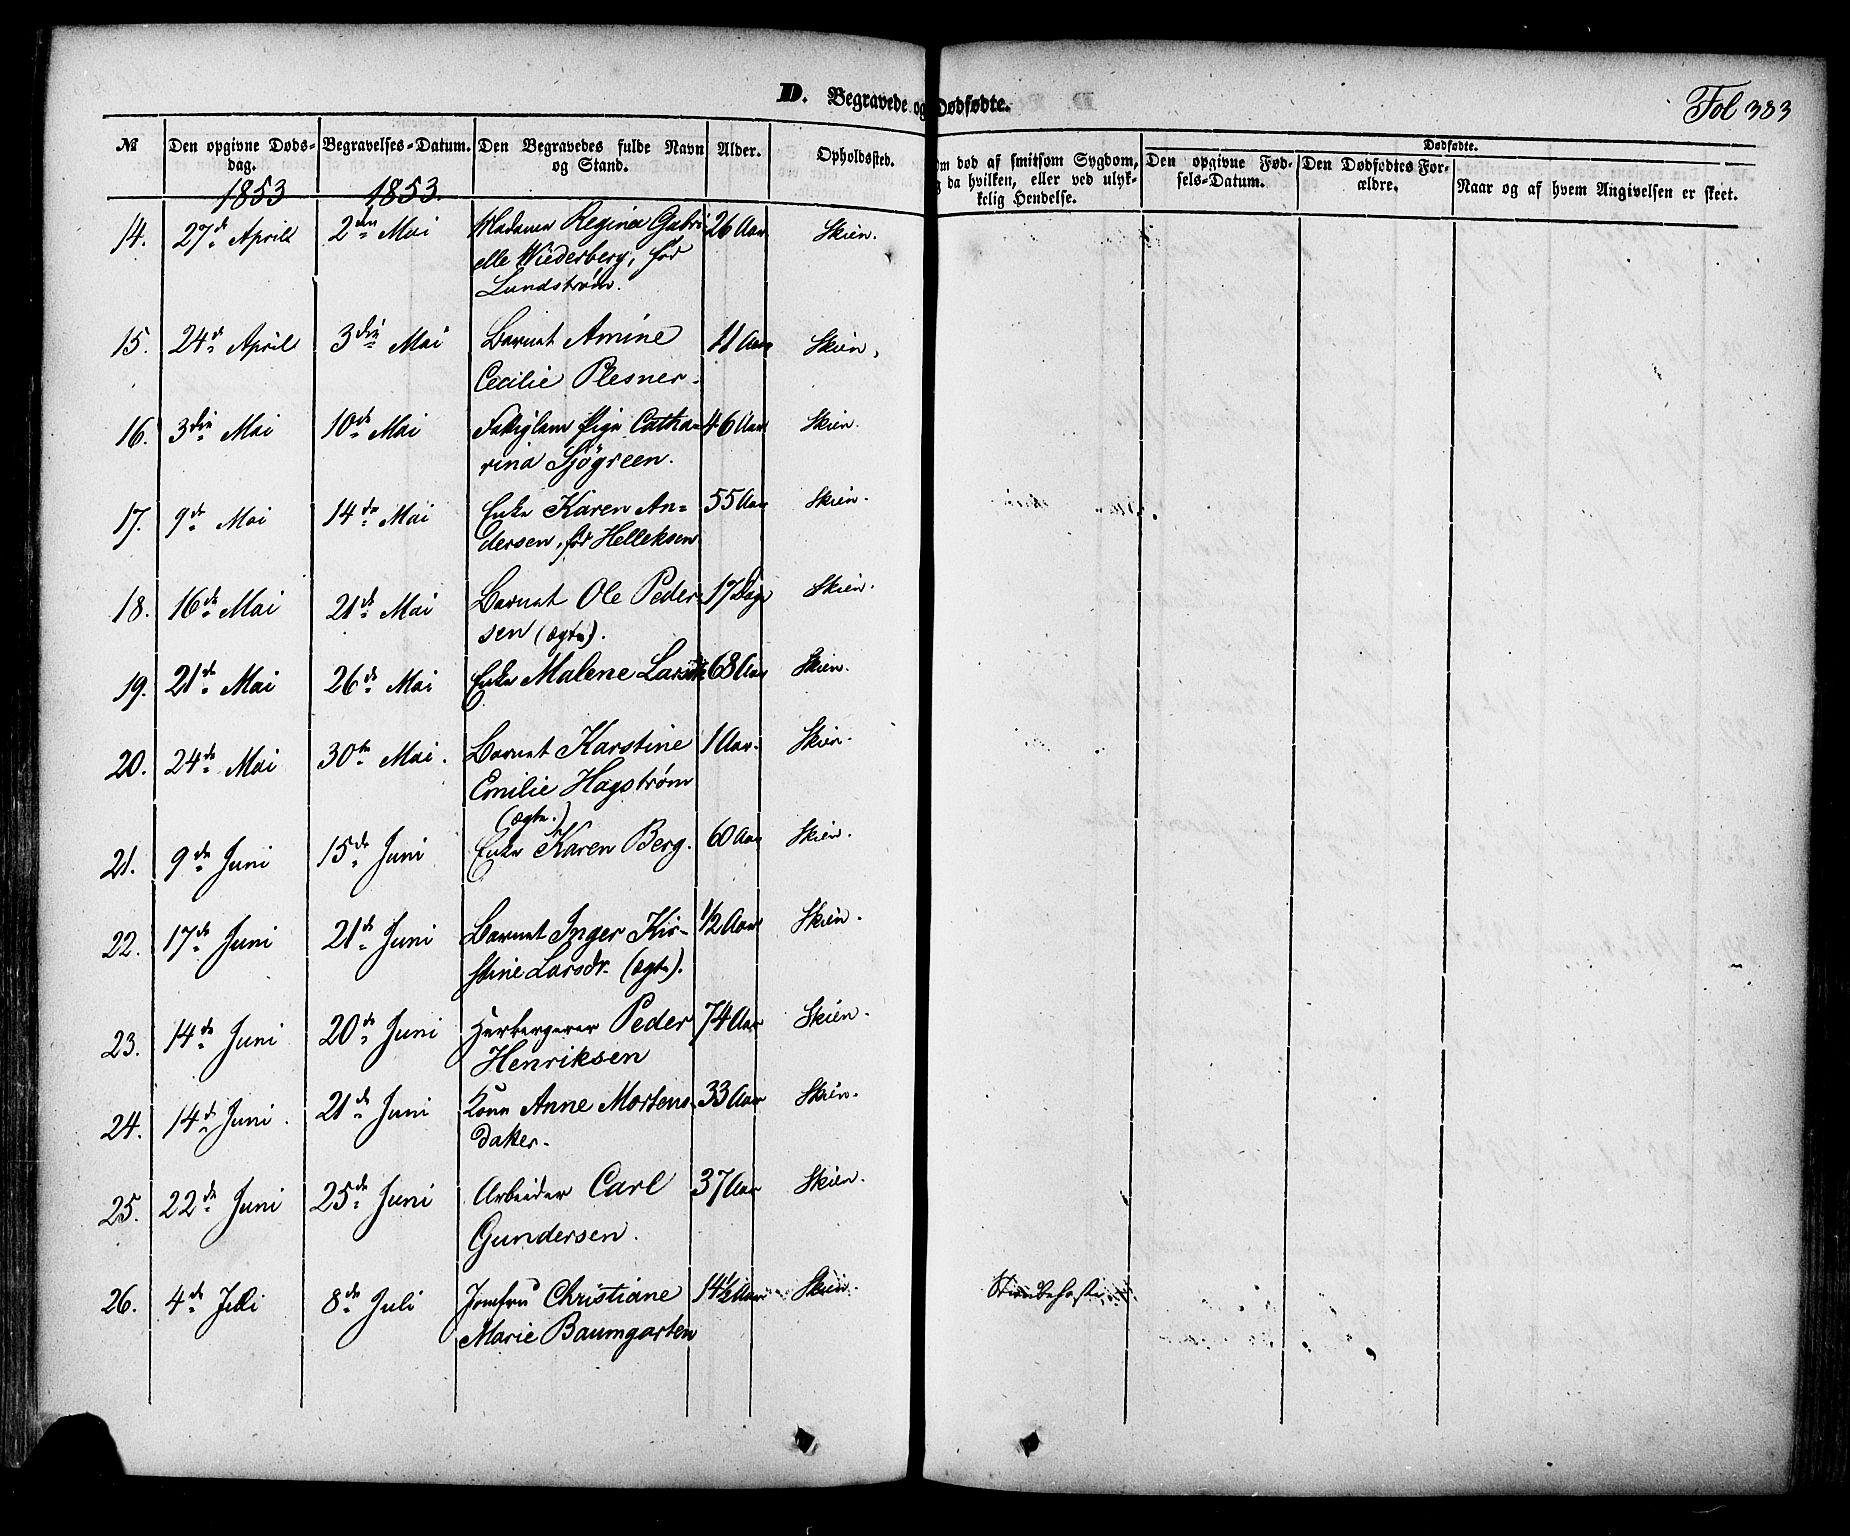 D. Begravede og Dødfødte.
Fol 383
№ Den opgivne Døds-dag. Begravelses-Datum. Den Begravedes fulde Navn og Stand. Alder. Opholdssted. Om død af smitsom Sygdom, og da hvilken, eller ved ulykkelig Hendelse. Dødfødte. Den opgivne Fødsels-Datum. Den Dødfødtes Forældre. Naar og af hvem Angivelsen er skeet.
1853 1853.
14. 27de April 2den Mai Madame Regina Gabri- 26 Aar Skien.
elle Wiederberg, før
Lundstrøm.
15. 24de April 3die Mai Barnet Amine 11 Aar Skien,
Cecilie Plesner.
16. 3die Mai 10de Mai Fattiglem Pige Catha- 46 Aar Skien.
rina Sjøgreen.
17. 9de Mai 14de Mai Enke Karen An= 55 Aar Skien.
dersen, før Helleksen
18. 16de Mai 21de Mai Barnet Ole Peder- 17 Dage Skien.
sen (ægte).
19. 21de Mai 26de Mai Enke Malene 68 Aar Skien.
20. 24de Mai 30te Mai. Barnet Karstine 1 Aar. Skien.
Emilie Hagstrøm
(ægte.)
21. 9de Juni 15de Juni Enke Karen Berg. 60 Aar Skien.
22. 17de Juni 21de Juni Barnet Inger Kir- 1/2 Aar Skien.
stine Larsdr. (ægte).
23. 14de Juni 20de Juni Herbergerer Peder 74 Aar Skien.
Henriksen
24. 14de Juni. 21de Juni Kone Anne Mortens- 33 Aar Skien.
datter.
25. 22de Juni 25de Juni Arbeider Carl 37 Aar Skien.
Gundersen.
26. 4de Juli 8de Juli Jomfru Christiane 14 1/2 Aar Skien.
Marie Baumgarten